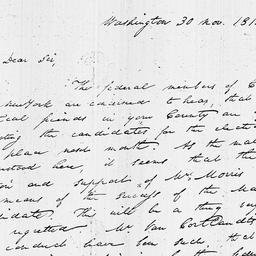 Washington 30 Nov. 181
Dear Sir,
The federal members of C
New York are concerned to hear, that
ical friends in your County are
ting the candidates for the electi
place next month. As the mat
stood here, it seems that the
on and support of Mr. Morris
means of the success of the Ma
didate. This will be a thing
regretted. Mr. Van Cortlandt
conduct have been such, that